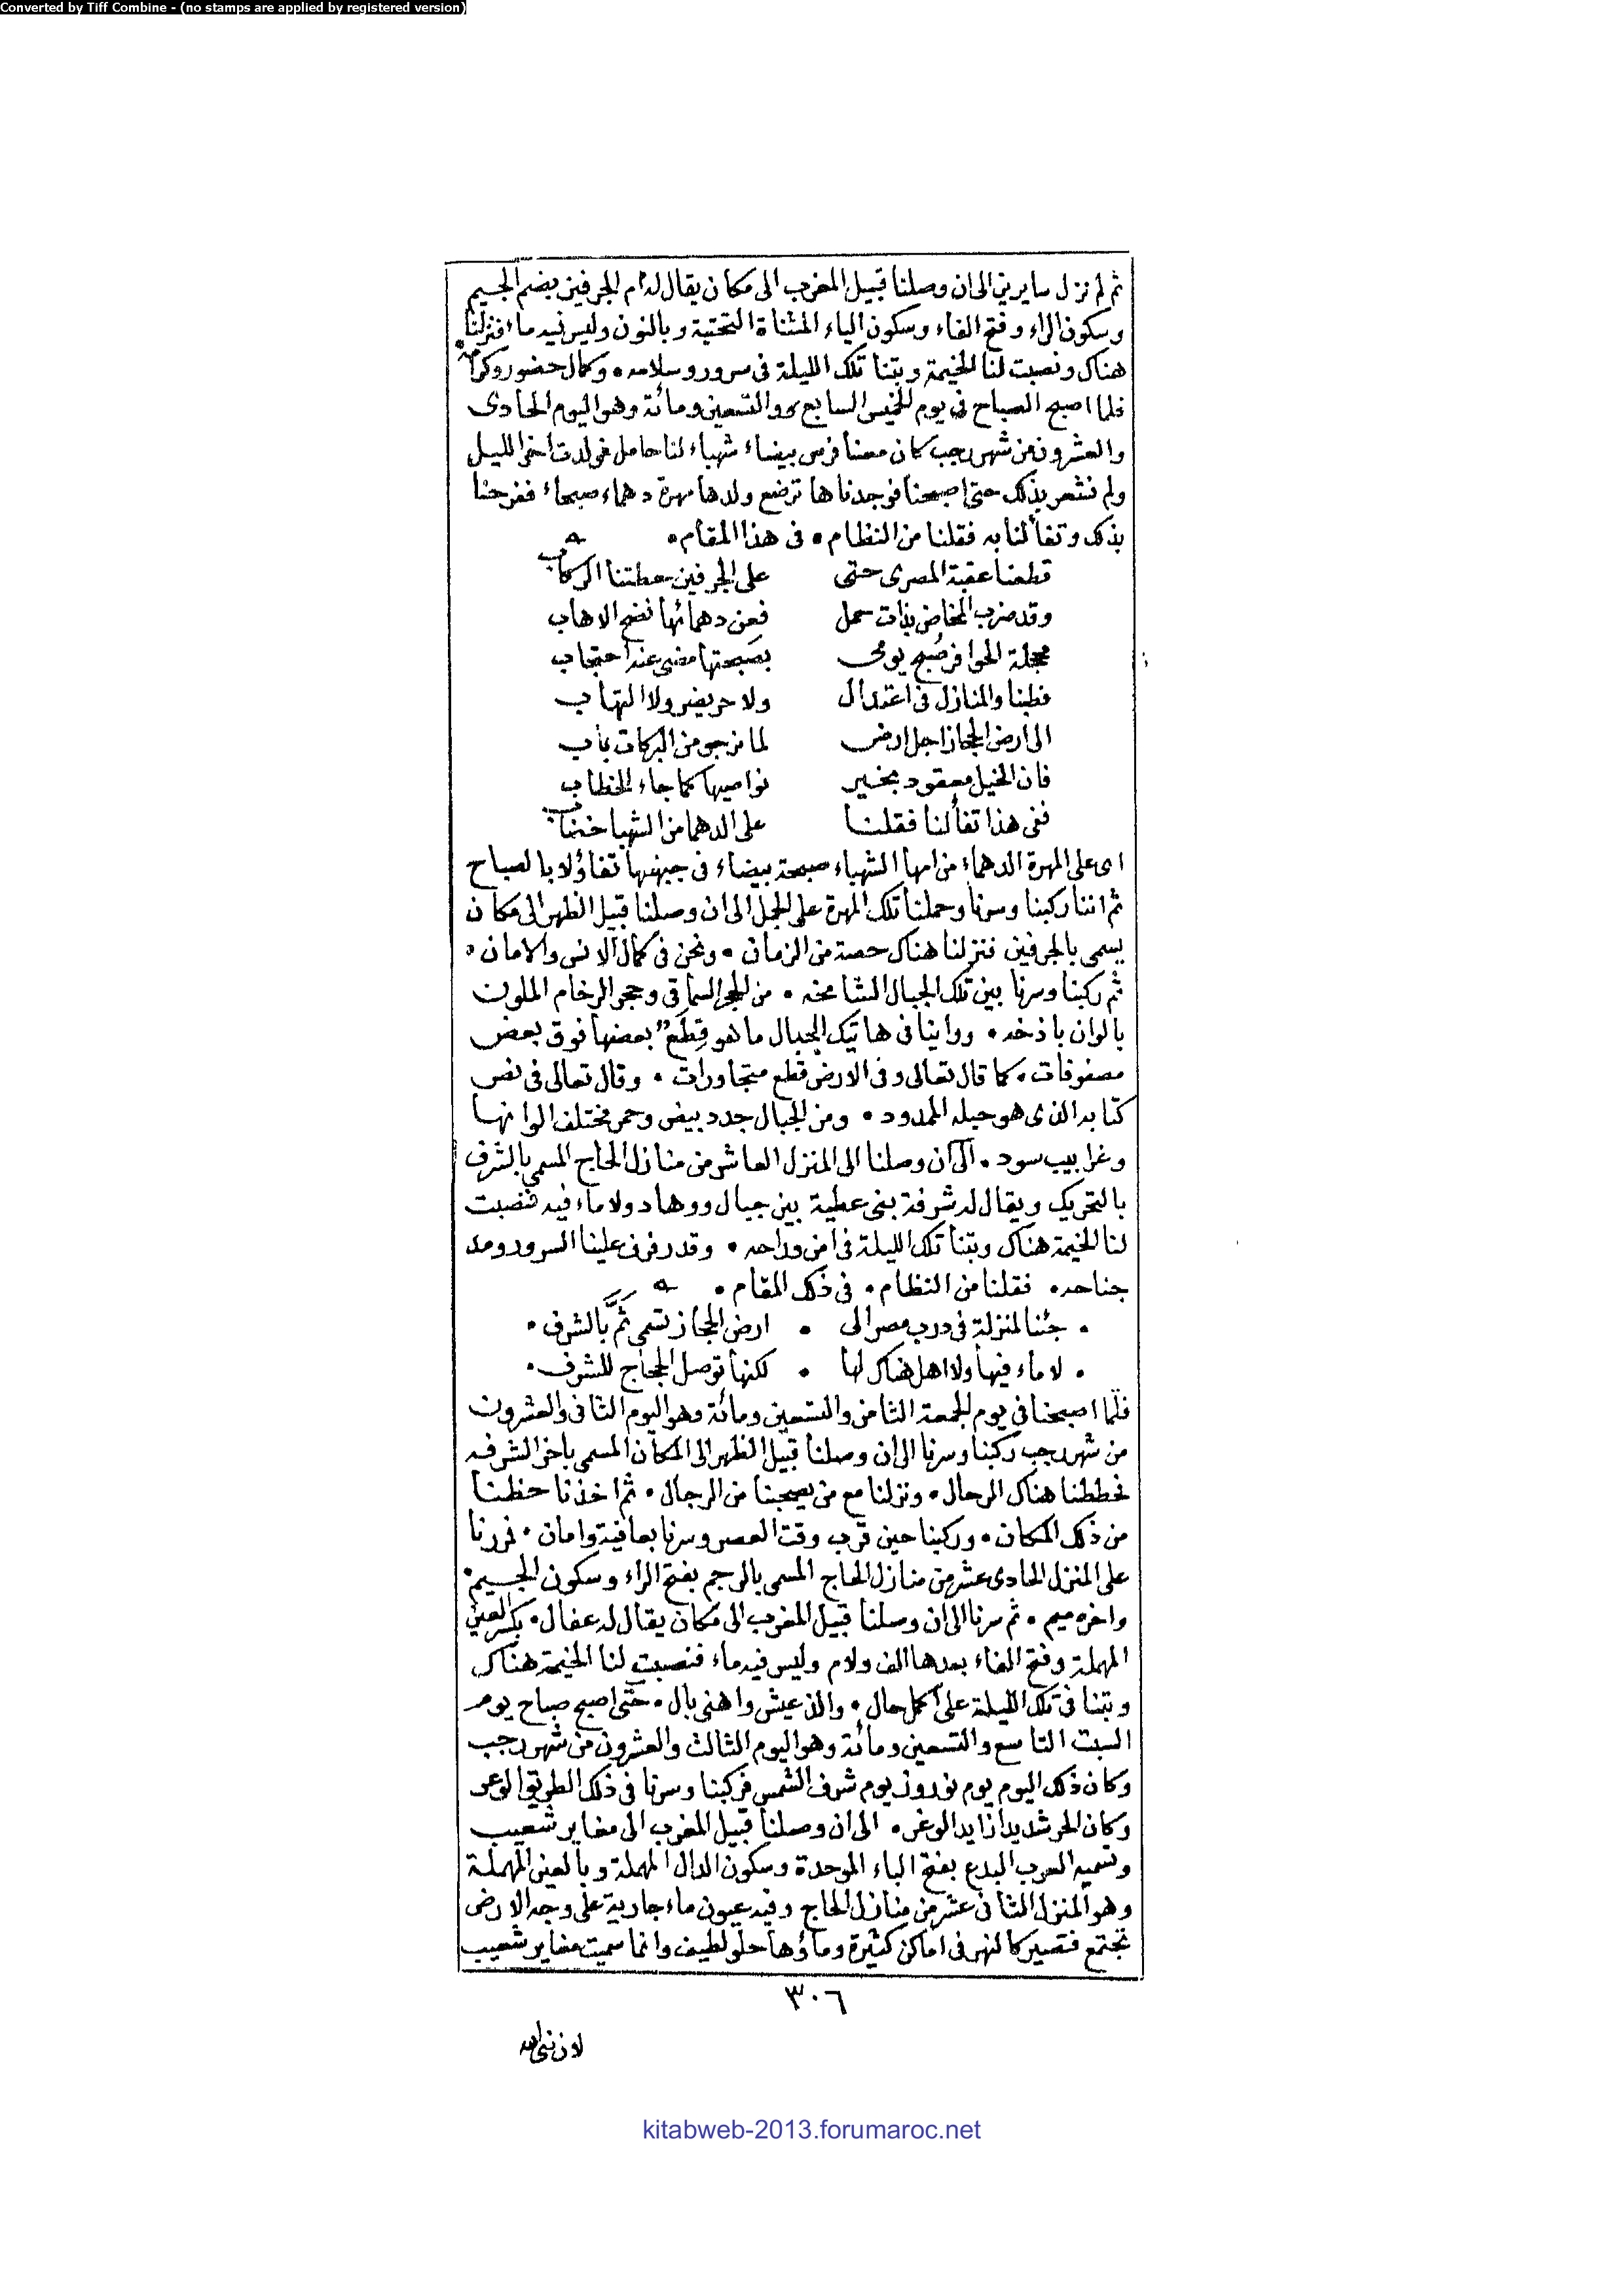 Converted by Tiff Combine - (no stamps are applied by registered version)
ثم لم نزل سايرين الى ان وصلنا قبيل المغرب الى مكان يقال له ام الجرفين بضم الجيم
وسكون الراء وفتح الفاء وسكون الياء المثناة التحتية وبالنون وليس فيه ماء فنزلنا
هناك ونصبت لنا الخيمة وبتنا تلك الليلة فى سرور وسلامه • وكمال حضور وكرامه
فلما اصبح الصباح فى يوم الخميس السابع والتسعين ومائة وهو اليوم الحادى
والعشرون من شهر رجب كان معنا فرس بيضاء شهباء لنا حامل فولدت اخر الليل
ولم نشعر بذلك حتى اصبحنا فوجدناها ترضع ولدها مهرة دهماء صبحاء ففرحنا
بذلك وتفألنا به فقلنا من النظام • فى هذا المقام •
قطعنا عقبة المصرى حتى على الجرفين حطتنا الركاب
وقد ضرب المخاض بذات حمل فعن دهمائها نضح الاهاب
محجلة الحوافر صبح يومى بصبحتها مضى عند احتجاب
فطبنا والمنازل فى اعتدال ولا حر يضر ولا التهاب
الى ارض الحجاز اجل ارض لما نرجو من البركات باب
فان الخيل معقود بخير نواصيها كما جاء الخطاب
ففى هذا تفألنا فقلنا على الدهما من الشهبا
اى على المهرة الدهماء من امها الشهباء صبحة بيضاء فى جبهتها تفاؤلا بالصباح
ثم اننا ركبنا وسرنا وحملنا تلك المهرة على الجمل الى ان وصلنا قبيل الظهر الى مكان
يسمى بالجرفين فنزلنا هناك حصة من الزمان • ونحن فى كمال الانس والامان •
ثم ركبنا وسرنا بين تلك الجبال الشامخه • من الحجر السماقى وحجر الرخام الملون
بالوان باذخه • وراينا فى هاتيك الجبال ما هو قِطَعٌ بعضها فوق بعض
مصفوفات • كما قال تعالى وفى الارض قطع متجاورات • وقال تعالى فى نص
كتابه الذى هو حبله الممدود • ومن الجبال جدد بيض وحمر مختلف الوانها
وغرابيب سود • الى ان وصلنا الى المنزل العاشر من منازل الحاج المسمى بالشرف
بالتحريك ويقال له شرفة بنى عطية بين جبال ووهاد ولا ماء فيه فنصبت
لنا الخيمة هناك وبتنا تلك الليلة فى امن وراحه • وقد رفرف علينا السرور ومد
جناحه • فقلنا من النظام • فى ذلك المقام •
• جئنا لمنزلة فى درب مصر الى • ارض الحجاز تسمى ثَمَّ بالشرف •
• لا ماء فيها ولا اهل هناك لها • لكنها توصل الحجاج للشرف •
فلما اصبحنا فى يوم الجمعة الثامن والتسعين ومائة وهو اليوم الثانى والعشرون
من شهر رجب ركبنا وسرنا الى ان وصلنا قبيل الظهر الى المكان المسمى باخر الشرفه
فحططنا هناك الرحال • ونزلنا مع من يصحبنا من الرجال • ثم اخذنا حظنا
من ذلك المكان • وركبنا حين قرب وقت العصر وسرنا بعافية وامان • فمررنا
على المنزل الحادى عشر من منازل الحاج المسمى بالرجم بفتح الراء وسكون الجيم •
واخره ميم • ثم سرنا الى ان وصلنا قبيل المغرب الى مكان يقال له عفال • بكسر العين
المهملة وفتح الفاء بعدها الف ولام وليس فيه ماء فنصبت لنا الخيمة هناك
وبتنا فى تلك الليلة على اكمل حال • والذ عيش واهنى بال • حتى اصبح صباح يوم
السبت التاسع والتسعين ومائة وهو اليوم الثالث والعشرون من شهر رجب
وكان ذلك اليوم يوم نوروز يوم شرف الشمس فركبنا وسرنا فى ذلك الطريق الوعر
وكان الحر شديدا زايد الوغر • الى ان وصلنا قبيل المغرب الى مغاير شعيب
وتسميه العرب البدع بفتح الباء الموحدة وسكون الدال المهملة وبالعين المهملة
وهو المنزل الثانى عشر من منازل الحاج وفيه عيون ماء جارية على وجه الارض
تجتمع فتصير كالنهر فى اماكن كثيرة وماؤها حلو لطيف وانما سميت مغاير شعيب
٣٠٦
لان نبى الله
kitabweb-2013.forumaroc.net